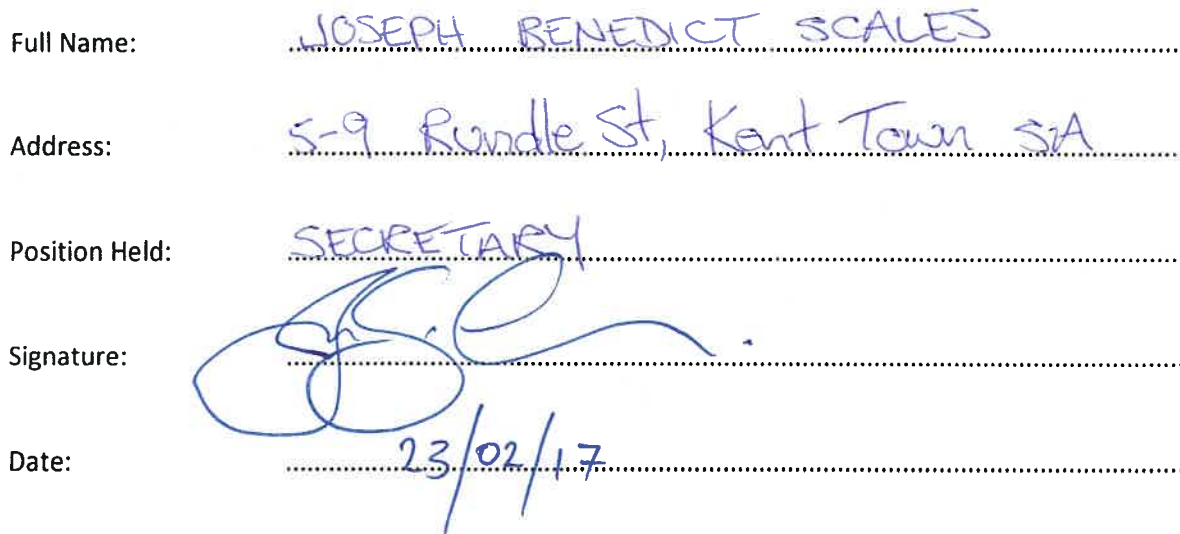 Full Name: JOSEPH BENEDICT SCALES
Address: 5-9 Rundle St, Kent Town SA
Position Held: SECRETARY
Signature:
Date: 23/02/17